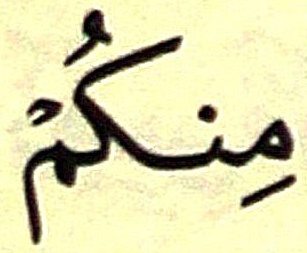 مِنكُمْ